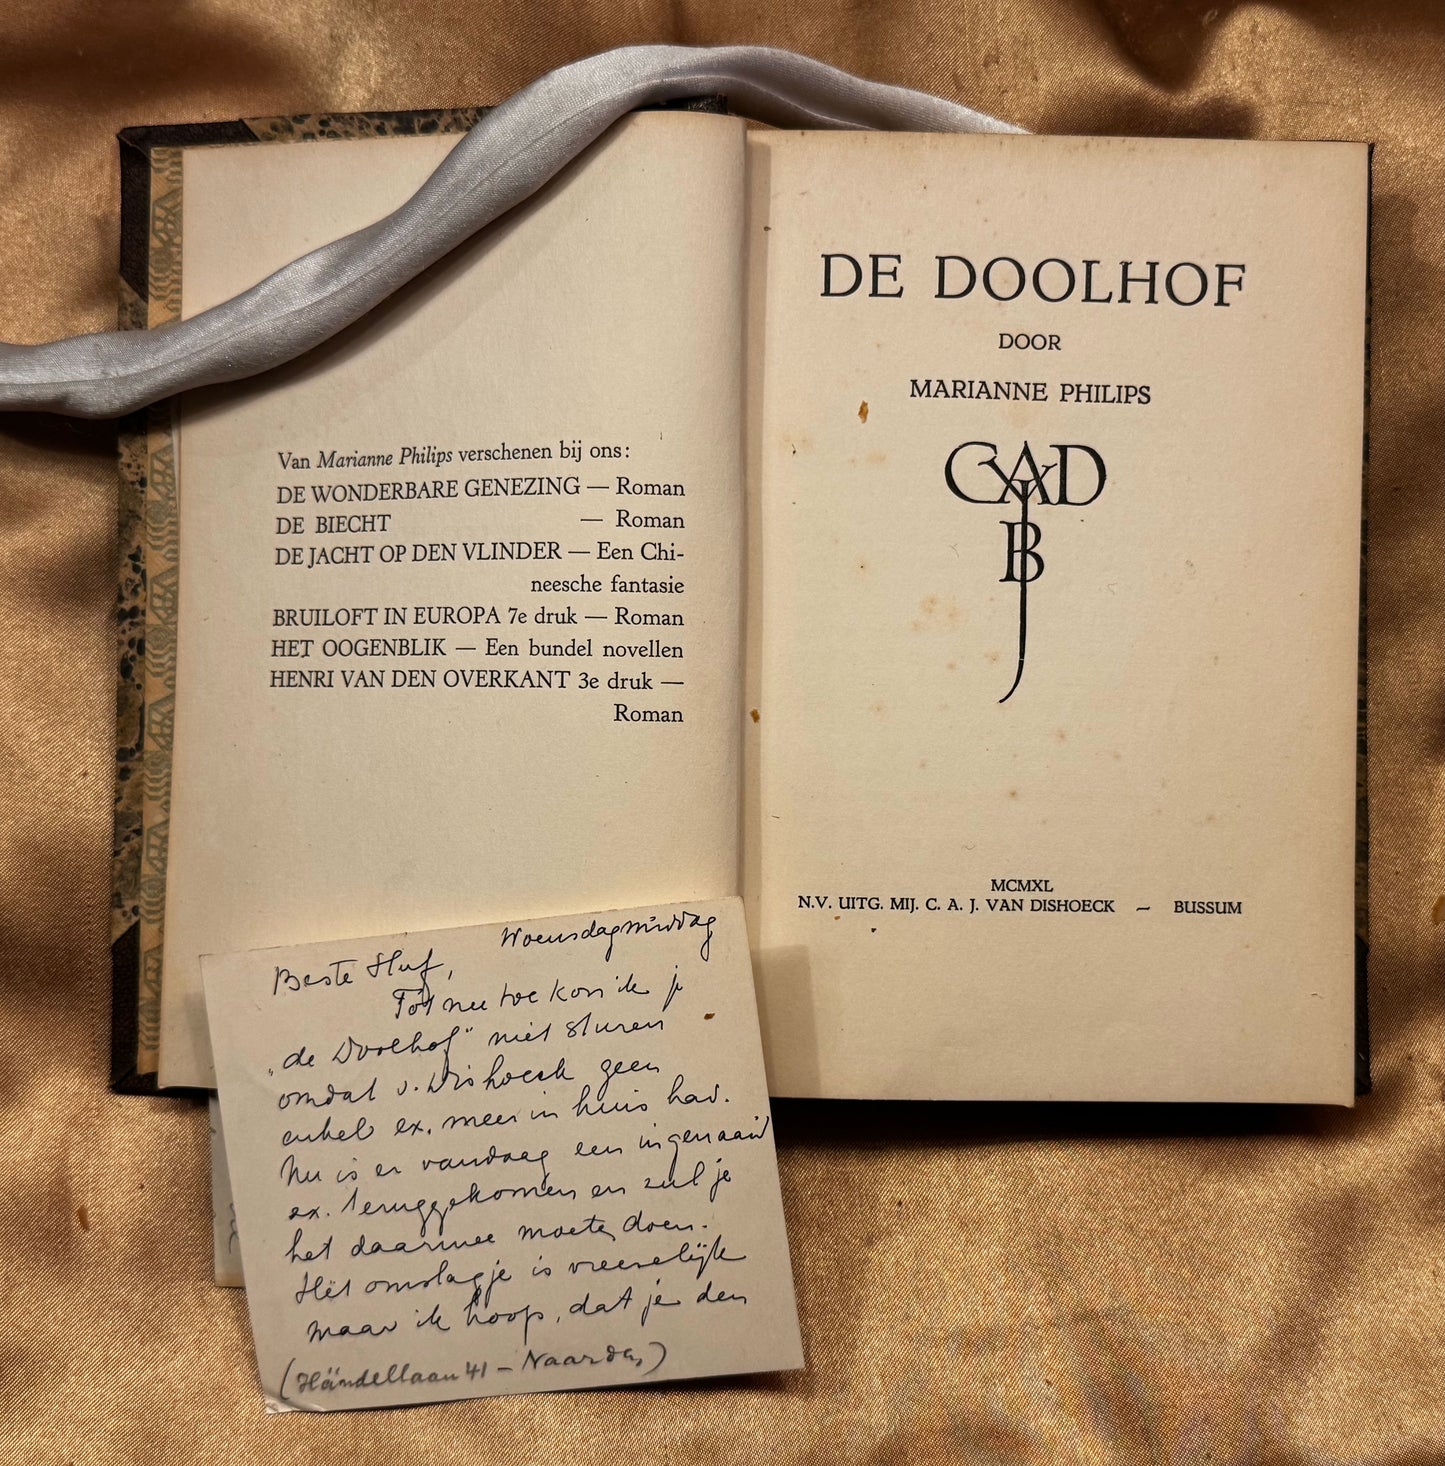 Van Marianne Philips verschenen bij ons:
DE WONDERBARE GENEZING — Roman
DE BIECHT — Roman
DE JACHT OP DEN VLINDER — Een Chi-
neesche fantasie
BRUILOFT IN EUROPA 7e druk — Roman
HET OOGENBLIK — Een bundel novellen
HENRI VAN DEN OVERKANT 3e druk —
Roman
DE DOOLHOF
DOOR
MARIANNE PHILIPS
CAJ
VAN
D
B
MCMXL
N.V. UITG. MIJ. C. A. J. VAN DISHOECK — BUSSUM
Woensdagmiddag
Beste Huf,
Tot nu toe kon ik je
„de Doolhof" niet sturen
omdat v. Dishoeck geen
enkel ex. meer in huis had.
Nu is er vandaag een ingenaaid
ex. teruggekomen en zul je
het daarmee moeten doen.
Het omslagje is vreeselijk
maar ik hoop, dat je den
(Händellaan 41 - Naarden)